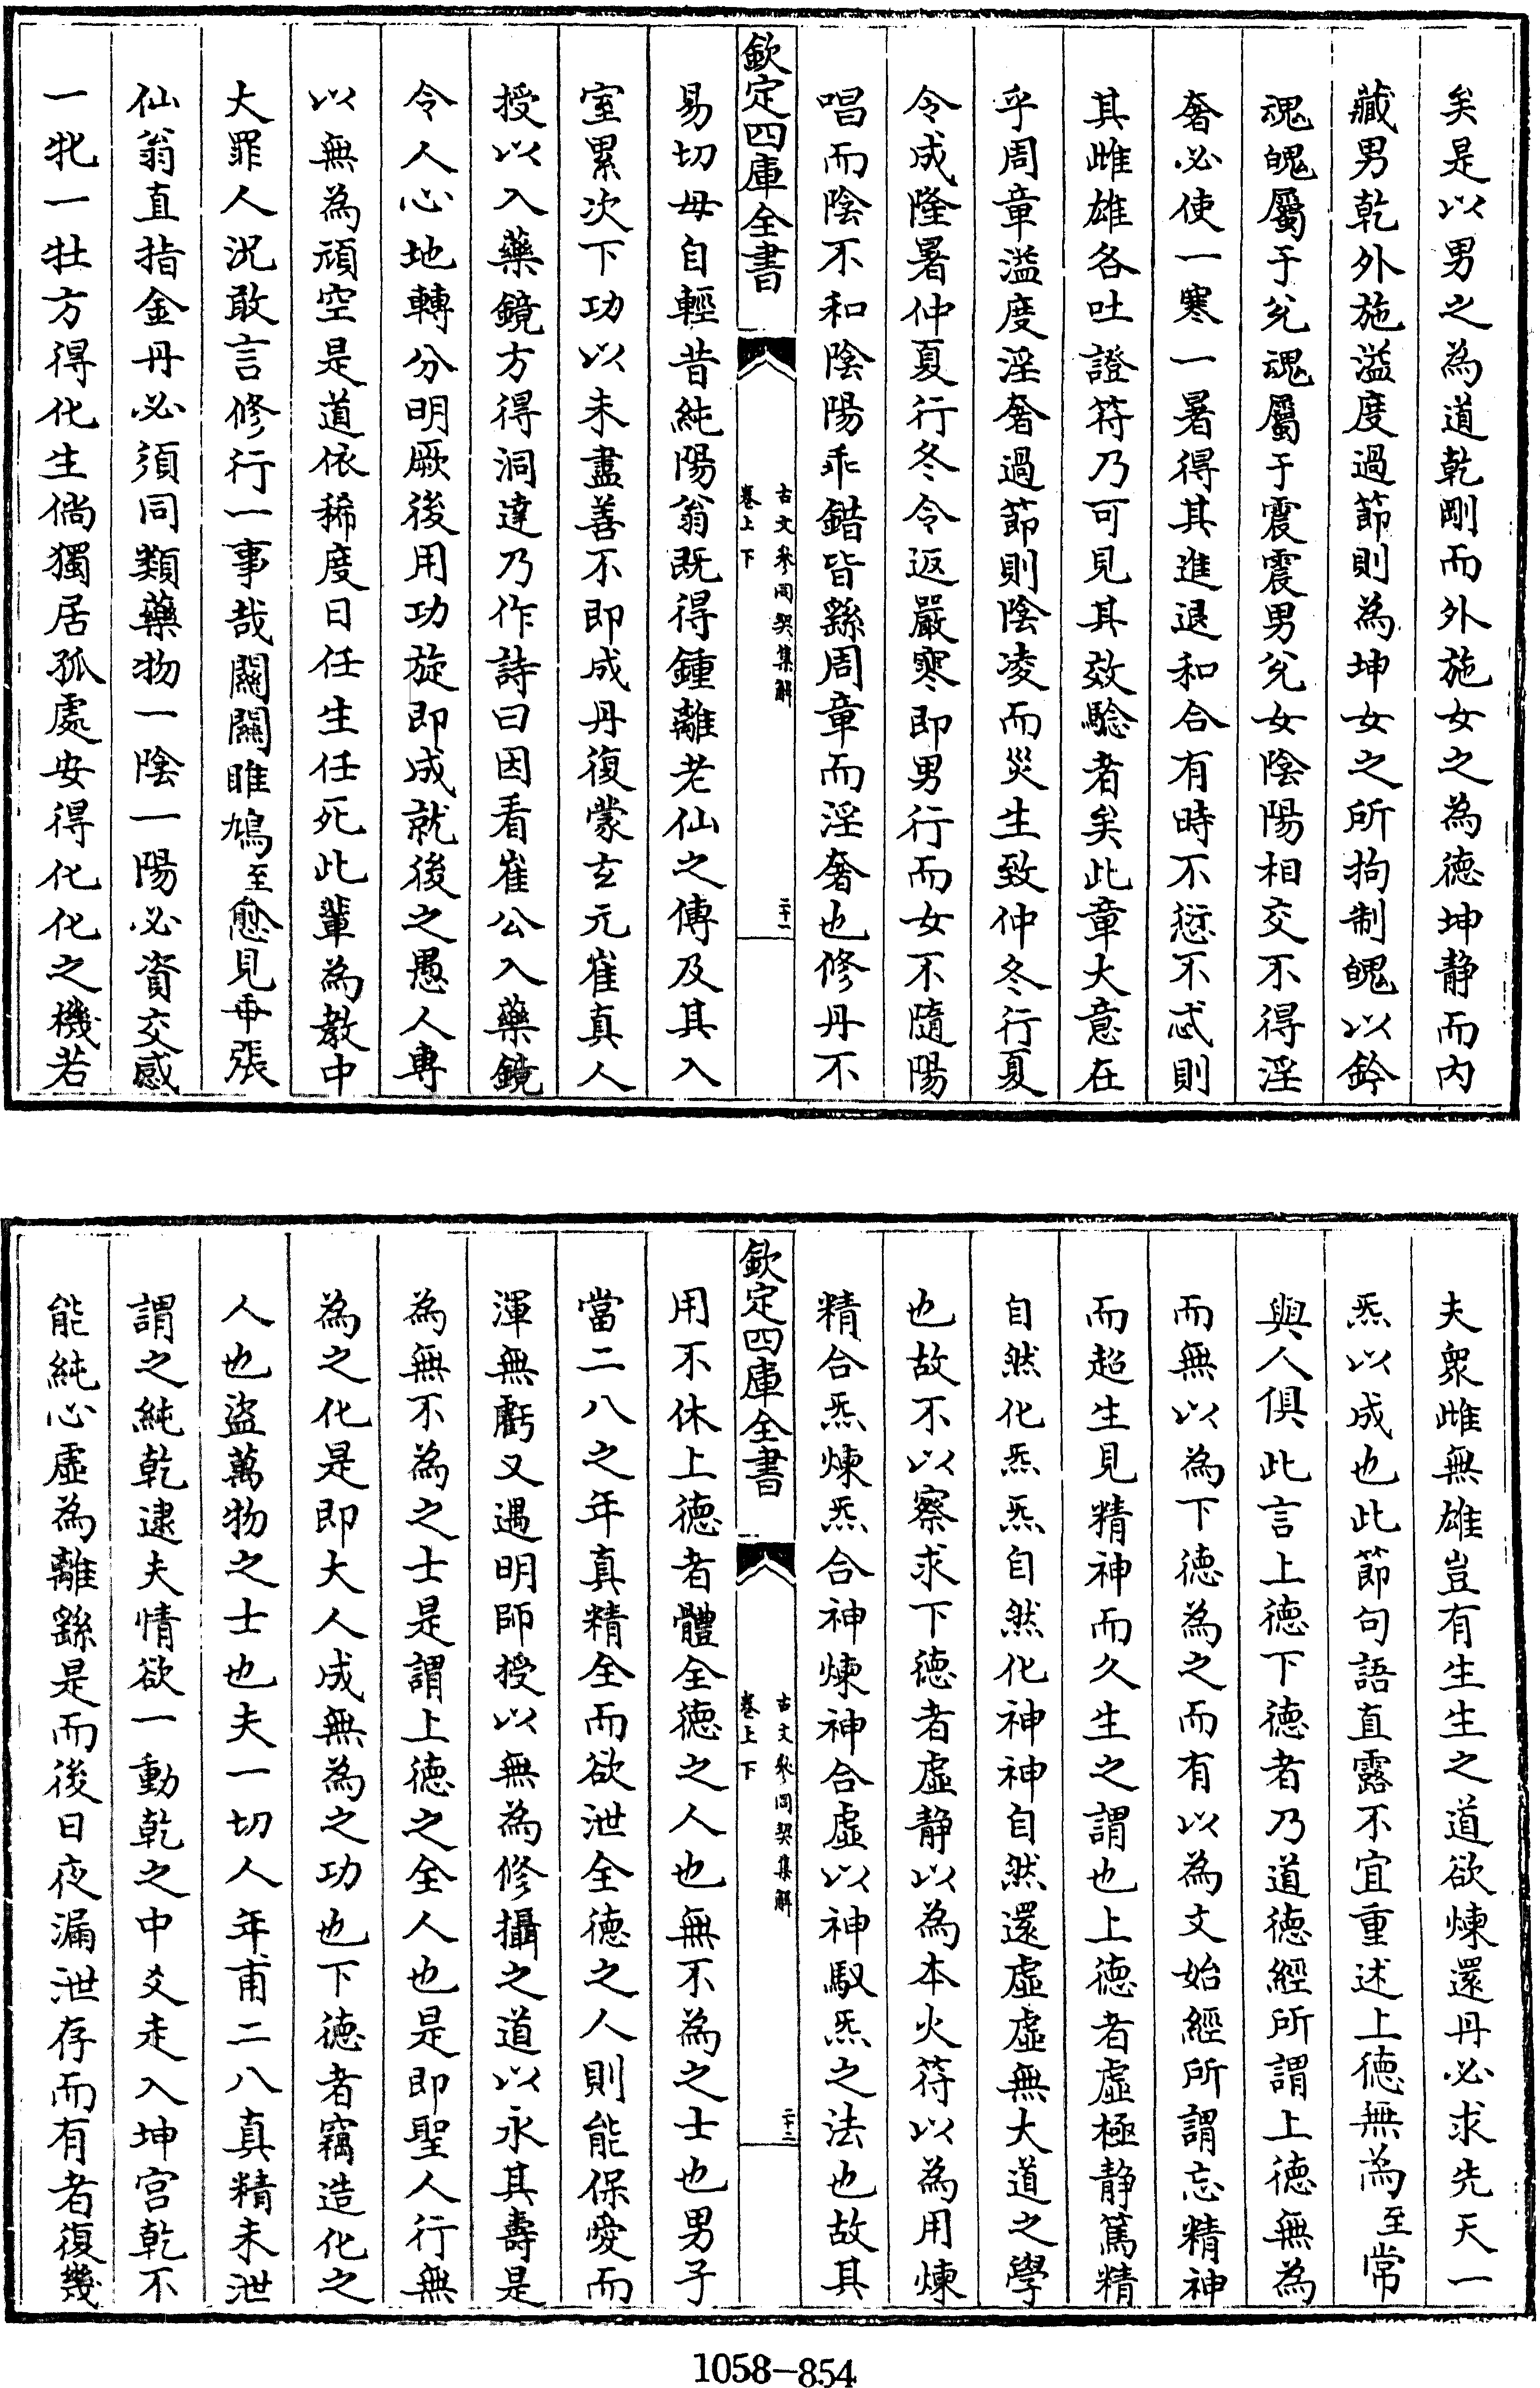 矣是以男之為道乾剛而外施女之為德坤静而内
藏男乾外施溢度過節則為坤女之所拘制魄以鈐
魂魄屬于兊魂屬于震震男兊女陰陽相交不得淫
奢必使一寒一暑得其進退和合有時不愆不忒則
其雌雄各吐證符乃可見其效騐者矣此章大意在
乎周章溢度淫奢過節則陰凌而災生致仲冬行夏
令成隆暑仲夏行冬令返嚴寒即男行而女不隨陽
唱而陰不和陰陽乖錯皆繇周章而淫奢也修丹不
欽定四庫全書
古文參同契集解
卷上下
二十一
易切毋自輕昔純陽翁既得鍾離老仙之傳及其入
室累次下功以未盡善不即成丹復蒙玄元崔真人
授以入藥鏡方得洞達乃作詩曰因看崔公入藥鏡
令人心地轉分明厥後用功旋即成就後之愚人專
以無為頑空是道依稀度日任生任死此輩為教中
大罪人況敢言修行一事哉關關雎鳩至愈見乖張
仙翁直指金丹必須同類藥物一陰一陽必資交感
一牝一牡方得化生倘獨居孤處安得化化之機若
夫衆雌無雄豈有生生之道欲煉還丹必求先天一
炁以成也此節句語直露不宜重述上德無為至常
與人俱此言上德下德者乃道德經所謂上德無為
而無以為下德為之而有以為文始經所謂忘精神
而超生見精神而久生之謂也上德者虛極静篤精
自然化炁炁自然化神神自然還虛虛無大道之學
也故不以察求下德者虛静以為本火符以為用煉
精合炁煉炁合神煉神合虛以神馭炁之法也故其
欽定四庫全書
古文參同契集解
卷上下
二十二
用不休上德者體全德之人也無不為之士也男子
當二八之年真精全而欲泄全德之人則能保愛而
渾無虧又遇明師授以無為修攝之道以永其壽是
為無不為之士是謂上德之全人也是即聖人行無
為之化是即大人成無為之功也下德者竊造化之
人也盜萬物之士也夫一切人年甫二八真精未泄
謂之純乾逮夫情欲一動乾之中爻走入坤宮乾不
能純心虛為離繇是而後日夜漏泄存而有者復幾
1058-854